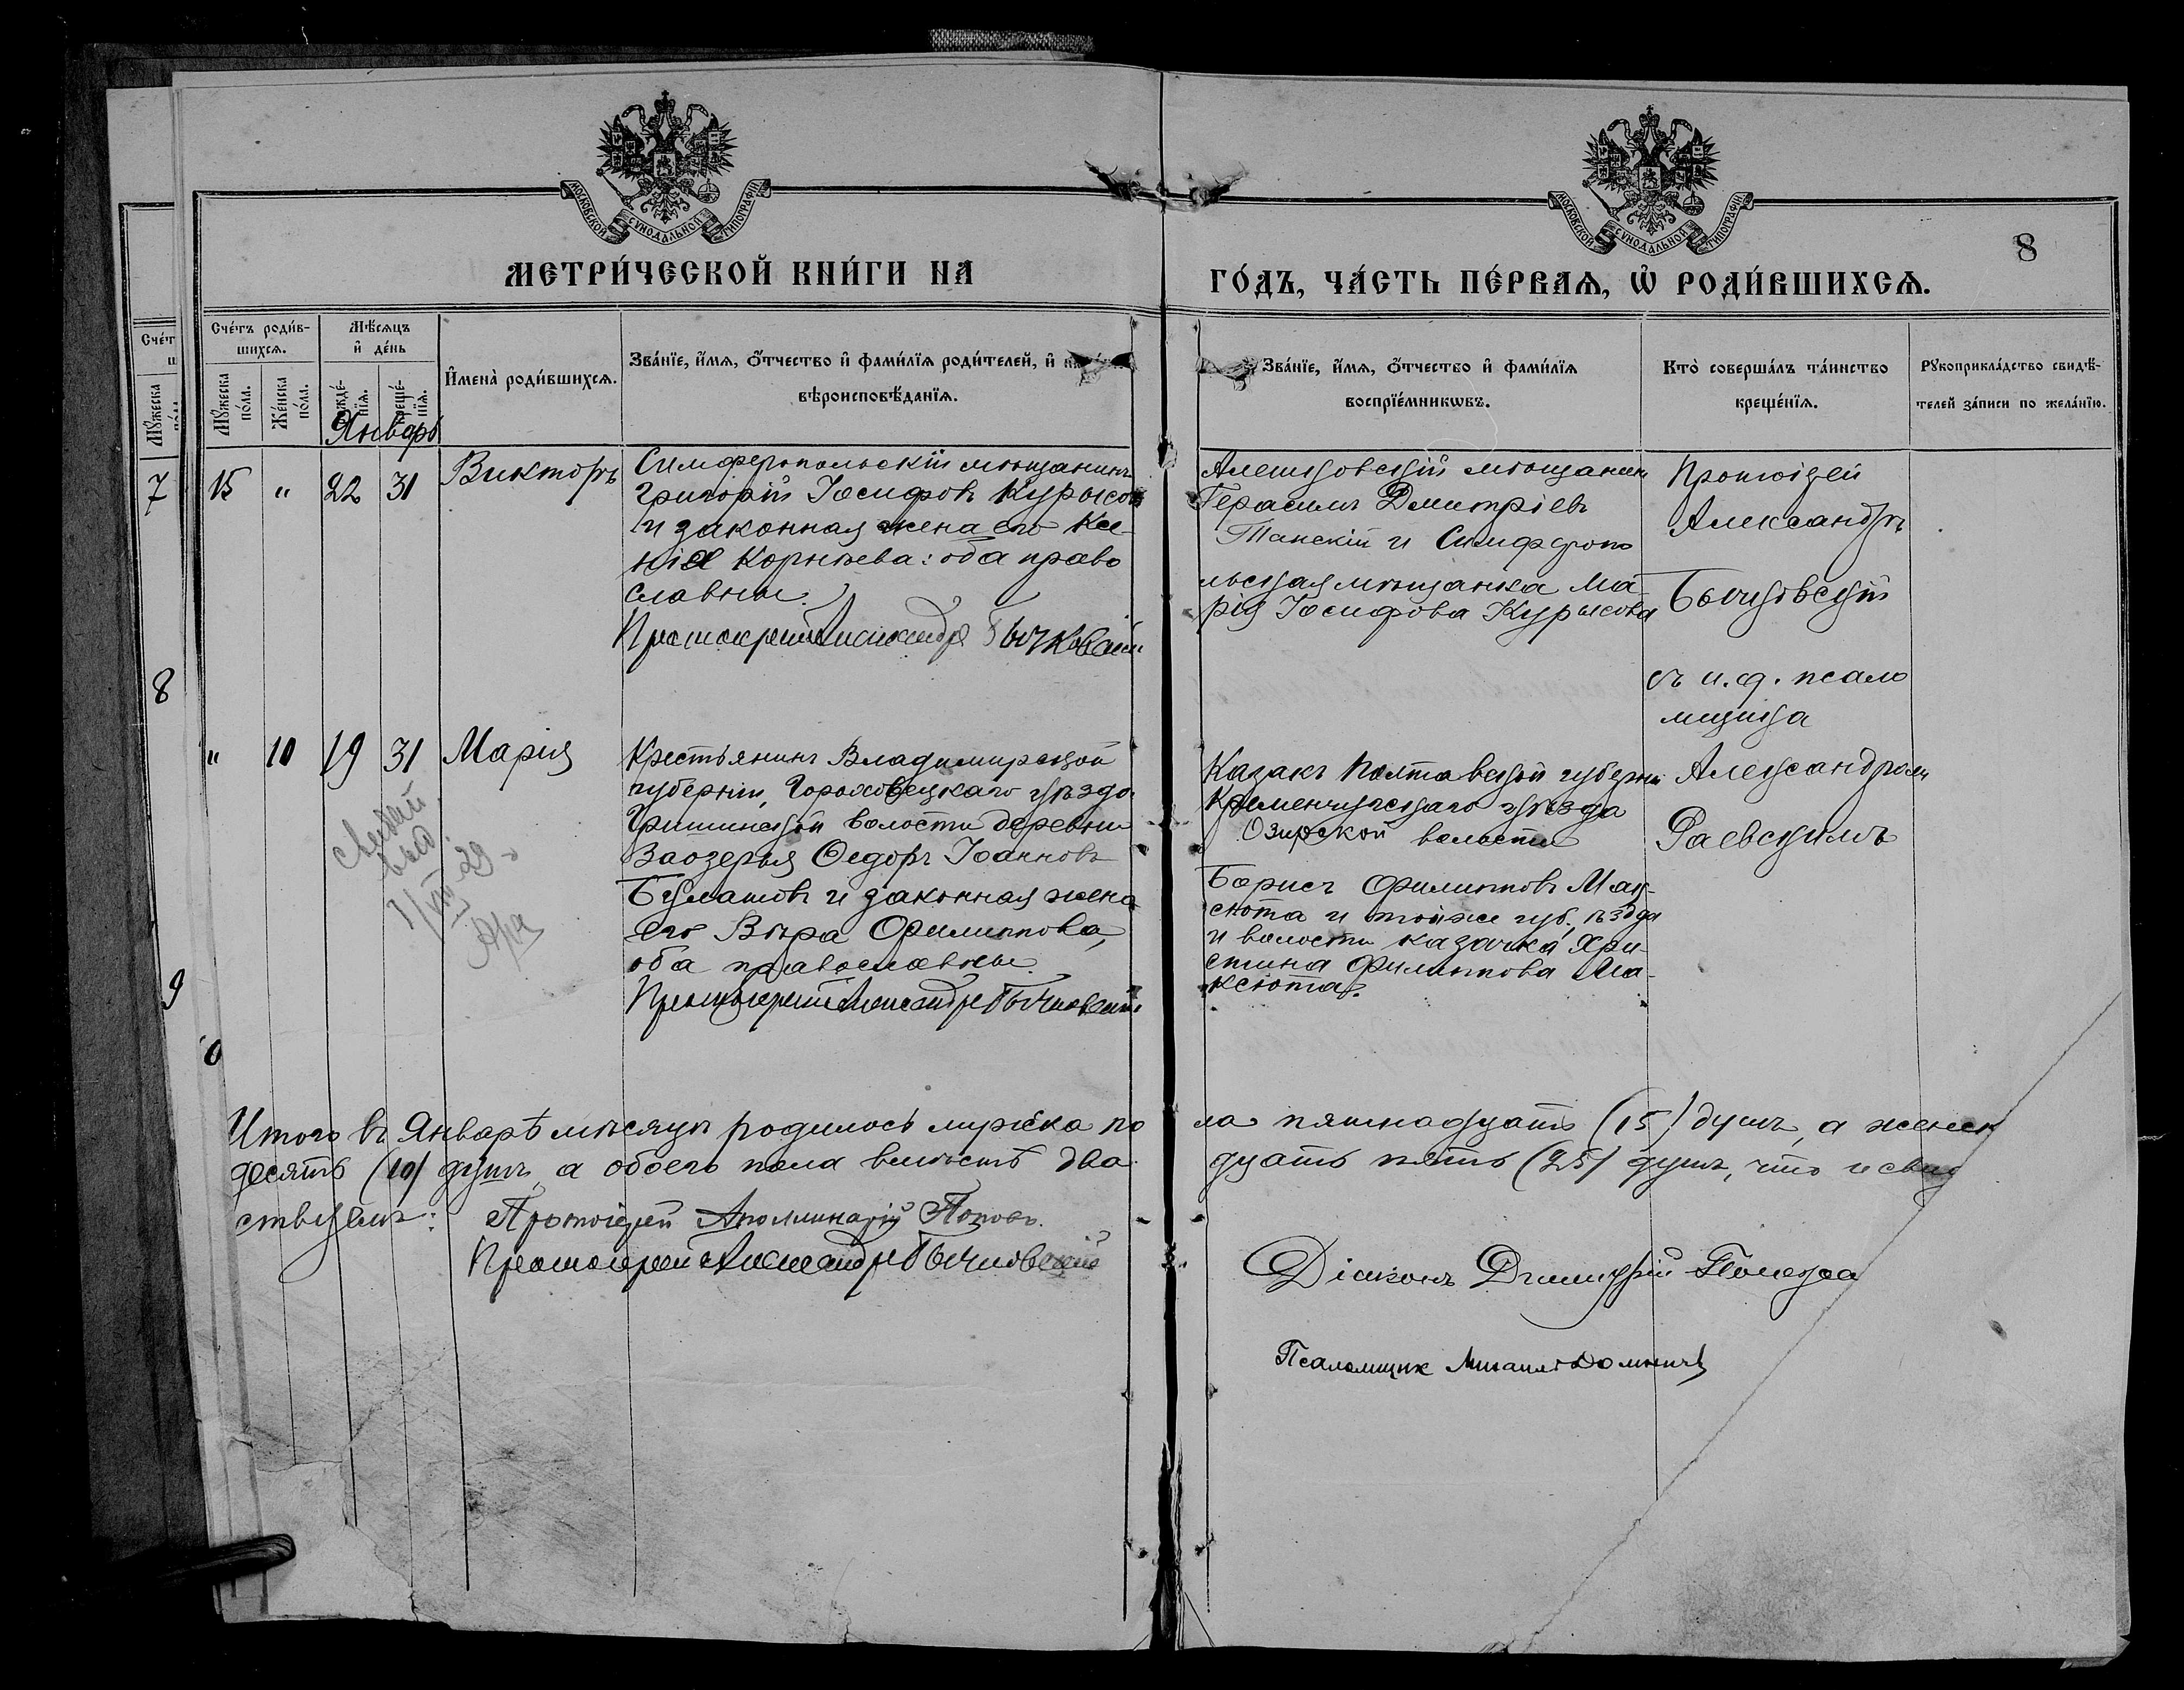 МОСКОВСКОЙ СѴНОДАЛЬНОЙ ТИПОГРАФІИ
МОСКОВСКОЙ СѴНОДАЛЬНОЙ ТИПОГРАФІИ
8
МЕТРИ́ЧЕСКОЙ КНИ́ГИ НА
ГО́ДЪ, ЧА́СТЬ ПЕ́РВАѦ, Ѡ҆ РОДИ́ВШИХСѦ.
Сче́тъ роди́в-
шихсѧ.
Мѣ́сѧцъ
и҆ де́нь
Мꙋ́жеска
по́ла.
Же́нска
по́ла.
И҆мена̀ роди́вшихсѧ.
Зва́нїе, и҆́мѧ, ѻ҆́тчество и҆ фами́лїѧ роди́телей, и҆
вѣроисповѣ́данїѧ.
Зва́нїе, и҆́мѧ, ѻ҆́тчество и҆ фами́лїѧ
воспрїе́мникѡвъ.
Кто̀ соверша́лъ та́инство
креще́нїѧ.
Рꙋкоприкла́дство свидѣ́-
телей за́писи по жела́нїю.
Январь
7
15 " 22 31 Викторъ
Симферопольскій мѣщанинъ
Григорій Іосифовъ Курысовъ
и законная жена его Ксе-
нія Корнѣева: оба право
славные.
Протоіерей Александръ Бычковскій
Алешковскій мѣщанинъ
Герасимъ Дмитріевъ
Танскій и Симферопо
льская мѣщанка Ма-
рія Іосифова Курысова
Протоіерей
Александръ
Бычковскій
съ и.д. псало
мщика
Александромъ
Раевскимъ
8
" 10 19 31 Марія
Крестьянинъ Владимирской
губерніи, Гороховецкаго уѣзда
Гришинской волости деревни
Заозерья Ѳедоръ Іоанновъ
Булатовъ и законная жена
его Вѣра Филиппова,
оба православные.
Протоіерей Александръ Бычковскій
Казакъ Полтавской губерніи
Кременчугскаго уѣзда
волости
Борисъ Филипповъ Мак-
сюта и тойже губ., уѣзда
и волости казачка Хри-
стина Филиппова Ма-
ксюта.
9
Итого въ Январѣ мѣсяцѣ родилось мужеска по
ла пятнадцать (15) душъ, а женск
десять (10) душъ, а обоего пола вмѣстѣ два
дцать пять (25) душъ, что и свид
ствуемъ:
Протоіерей Аполлинарій Поповъ.
Протоіерей Александръ Бычковскій
Діаконъ Димитрій
Псаломщик Михаилъ